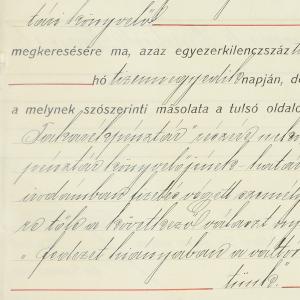 tári könyvelő
megkeresésére ma, azaz egyezerkilenczszáz
hó tizennegyedik napján, de
a melynek szószerinti másolata a tulsó oldalo
Takarékpénztár részvén
pénztár könyvelőjének
irodámban fizetés végett személy
re tőle a következő választ ny
„ fedezet hiányában a váltó
tünk."